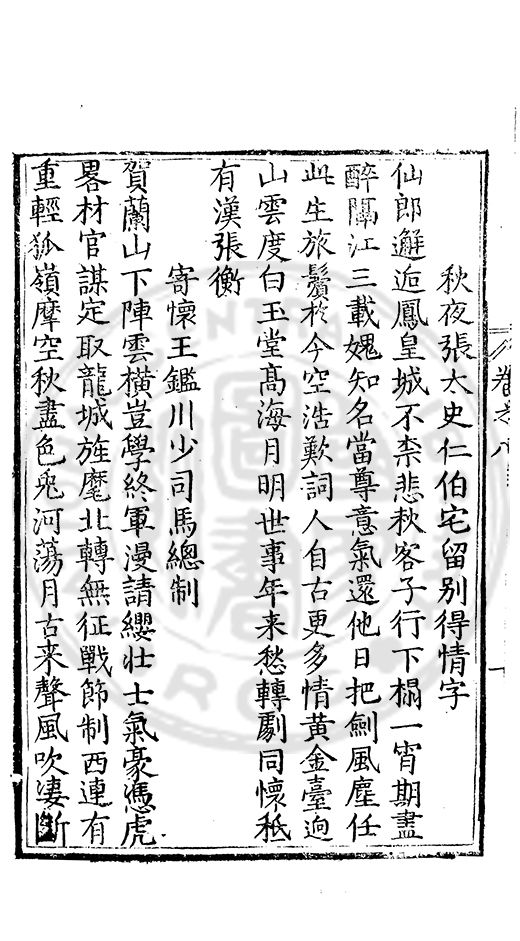 秋夜張太史仁伯宅留別得情字
仙郎邂逅鳳皇城不柰悲秋客子行下榻一宵期盡
醉隔江三載媿知名當尊意氣還他日把劍風塵任
此生旅鬢於今空浩歎詞人自古更多情黃金臺迥
山雲度白玉堂高海月明世事年来愁轉劇同懷秪
有漢張衡
寄懷王鑑川少司馬總制
賀蘭山下陣雲橫豈學終軍漫請纓壯士氣豪馮虎
畧材官謀定取龍城旌麾北轉無征戰節制西連有
重輕狐嶺摩空秋盡色兎河蕩月古来聲風吹凄斷
卷之八